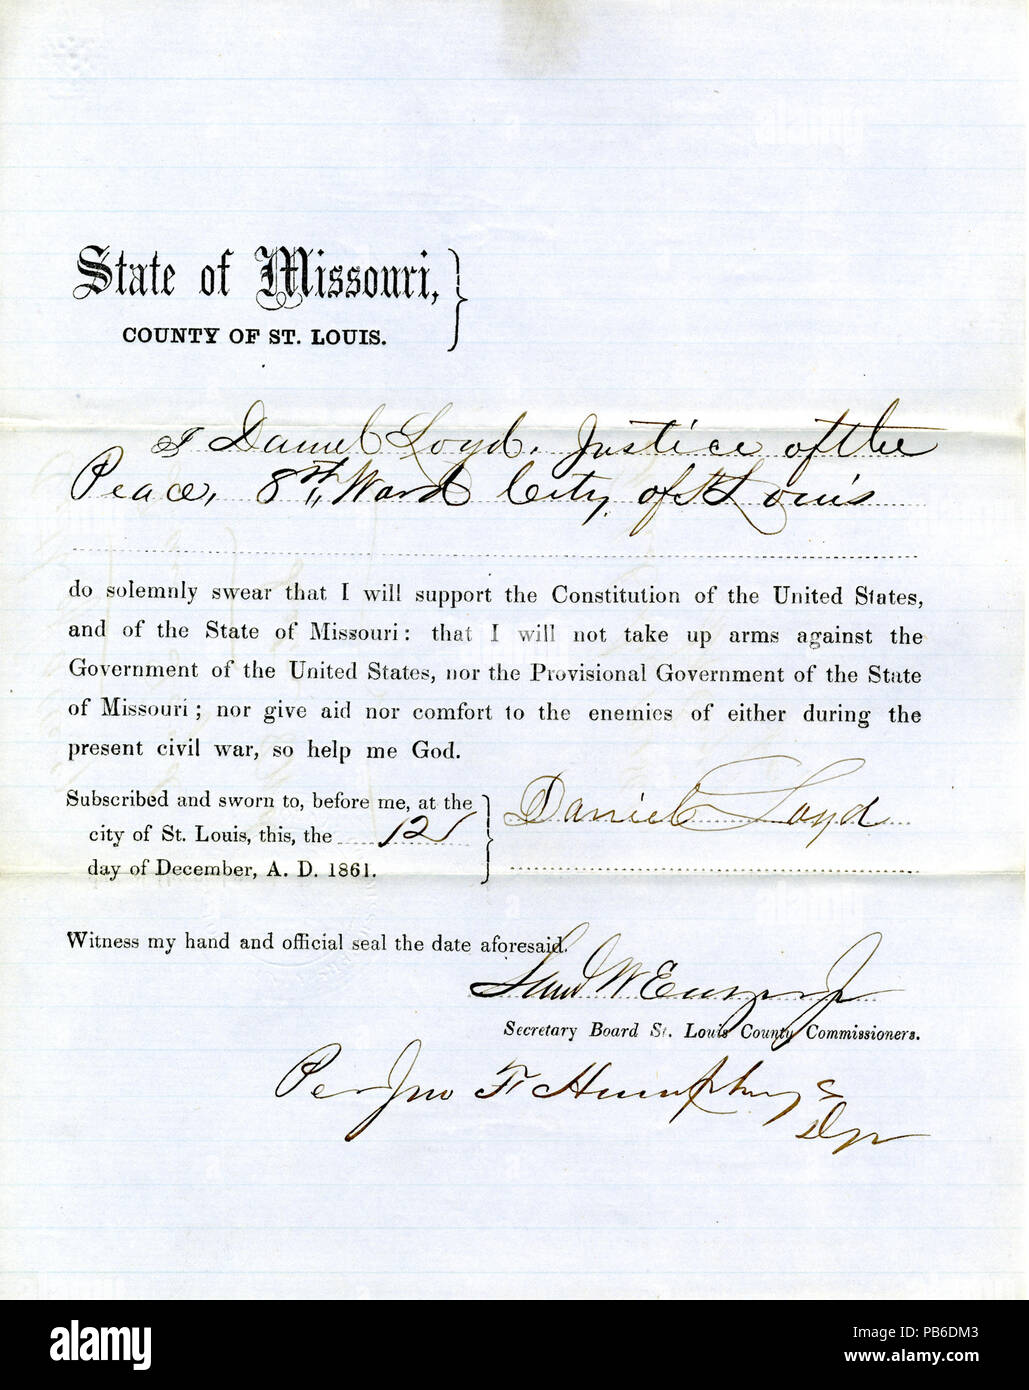 State of Missouri,
COUNTY OF ST. LOUIS.
I Daniel Loyd. Justice of the
Peace, 8th Ward City of St Louis
do solemnly swear that I will support the Constitution of the United States,
and of the State of Missouri: that I will not take up arms against the
Government of the United States, nor the Provisional Government of the State
of Missouri; nor give aid nor comfort to the enemies of either during the
present civil war, so help me God.
Subscribed and sworn to, before me, at the
city of St. Louis, this, the 12
day of December, A. D. 1861.
Daniel Loyd
Witness my hand and official seal the date aforesaid.
W
Secretary Board St. Louis County Commissioners.
Per Jno F Humphreys
alamy
Image ID: PB6DM3
www.alamy.com